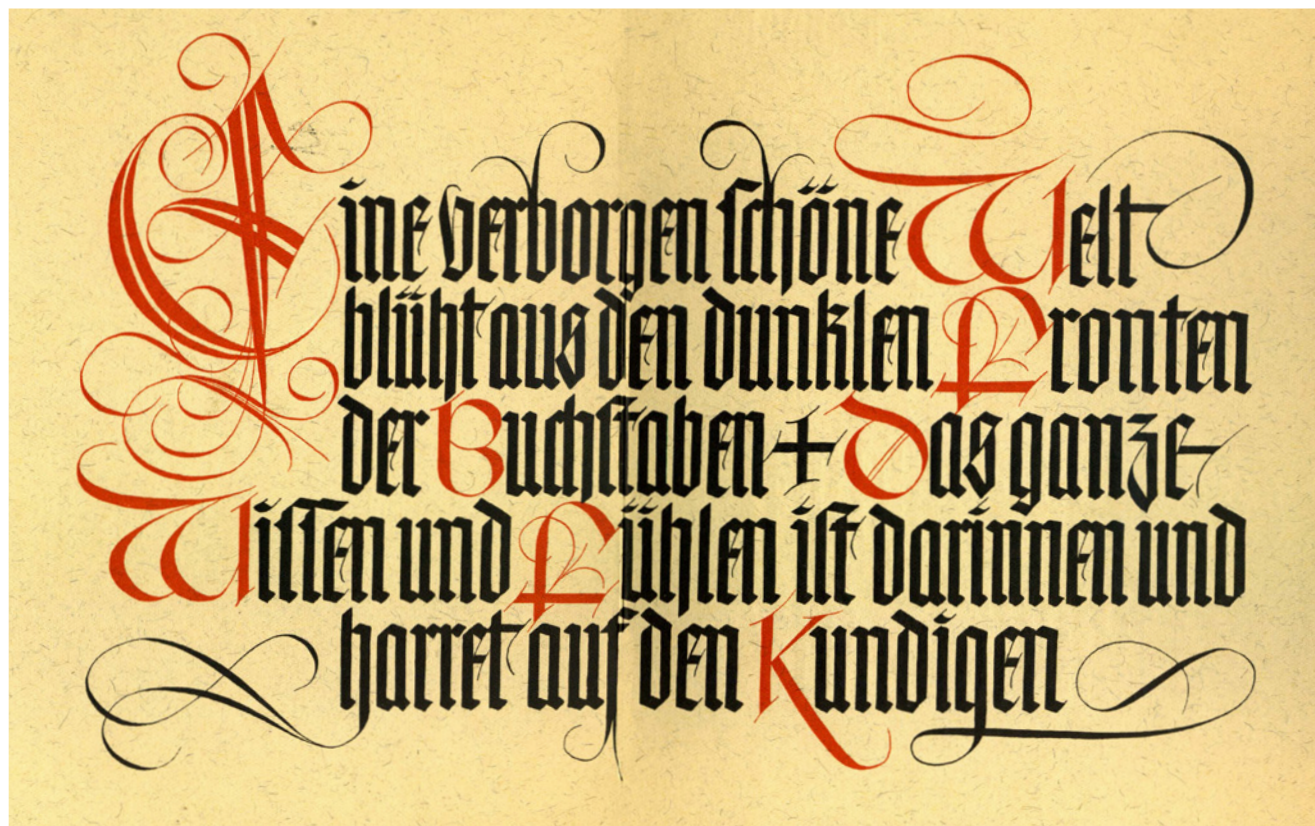 Eine verborgen schöne Welt
blüht aus den dunklen Fronten
der Buchstaben + Das ganze
Wissen und Fühlen ist darinnen und
harret auf den Kundigen